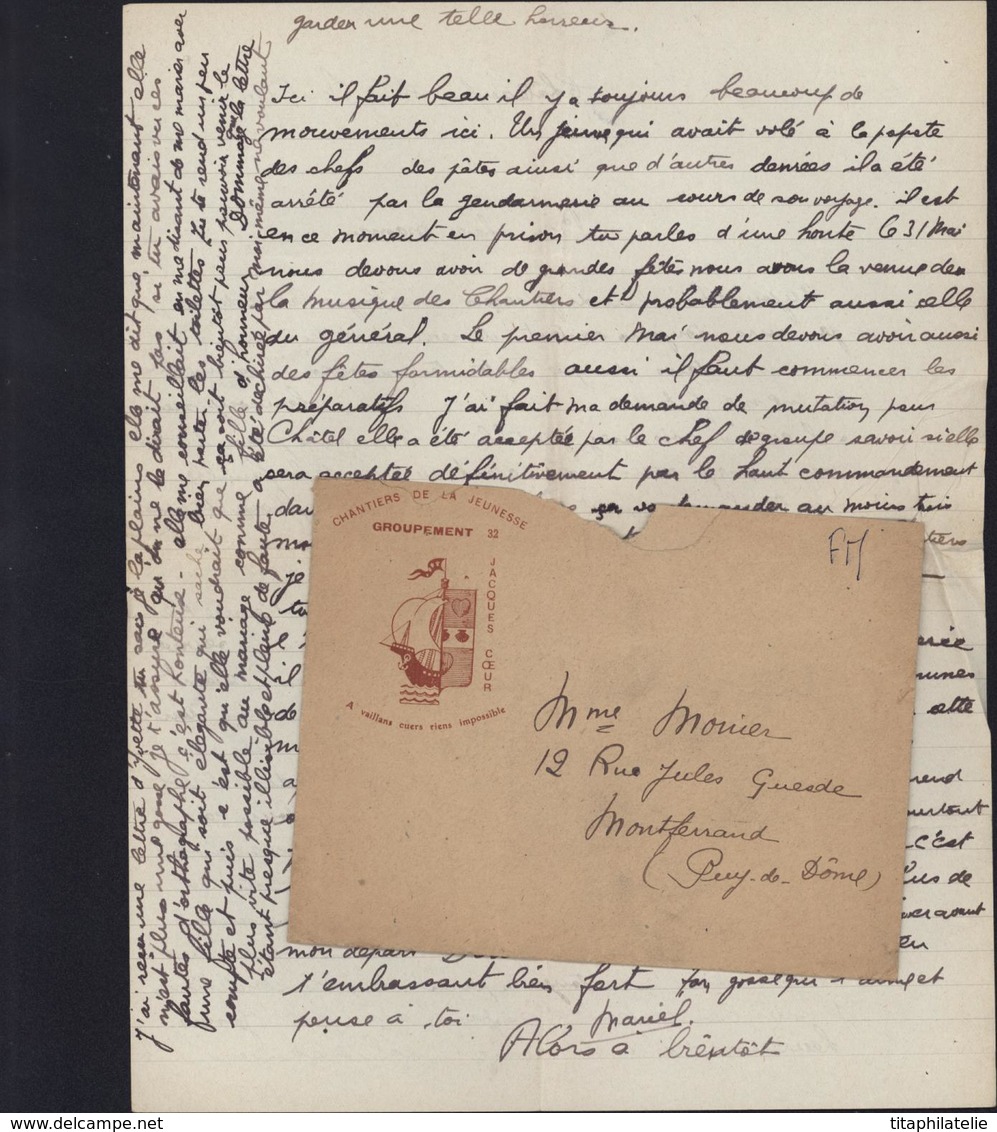 garder une telle horreur.
Ici il fait beau il y a toujours beaucoup de
mouvements ici. Un jeune qui avait volé à la popote
des chefs des pâtes ainsi que d'autres denrées il a été
arrêté par la gendarmerie au cours de son voyage. il est
en ce moment en prison tu parles d'une honte le 31 Mai
nous devons avoir de grandes fêtes nous avons la venue de
la musique des Chantiers et probablement aussi celle
du général. Le premier Mai nous devons avoir aussi
des fêtes formidables aussi il faut commencer les
préparatifs J'ai fait ma demande de mutation pour
Châtel elle a été acceptée par le chef de groupe savoir si elle
sera acceptée définitivement par le haut commandement
demander au moins trois
je
il
de
cette
rend
surtout
c'est
plus de
avant
mon départ
t'embrassant bien fort ton gosse qui t'aime et
pense à toi
Marcel
Alors à bientôt
J'ai reçu une lettre d'Yvette tu sais je la plains elle me dit que maintenant elle
n'est plus une gosse je t'assure qu'on ne le dirait pas si tu avais vu ces
fautes d'orthographe c'est honteux - elle me conseillait en me disant de me marier avec
une fille qui soit élégante qui sache bien porter les toilettes
compte et puis c'est qu'elle voudrait que ça soit bientôt pour pouvoir venir le
plus vite possible au mariage comme fille d'honneur. Dommage que la lettre
étant presque illisible et plein de fautes a été déchirée par moi-même ne voulant
CHANTIERS DE LA JEUNESSE
GROUPEMENT 32
JACQUES CŒUR
A vaillans cuers riens impossible
FM
Mme Monier
12 Rue Jules Guesde
Montferrand
(Puy-de-Dôme)
titaphilatelie